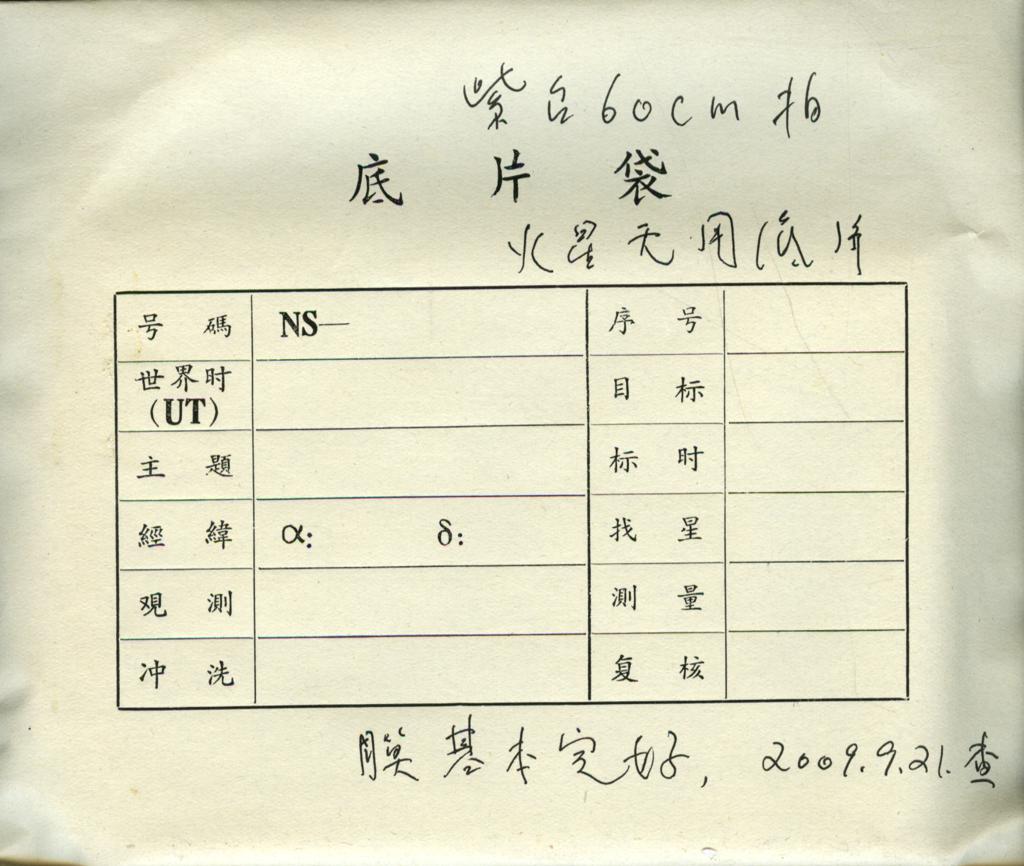 紫台60cm拍
底片袋
火星无用底片
号碼 NS— 序号
世界时(UT) 目标
主題 标时
經緯 α: δ: 找星
观測 測量
冲洗 复核
膜基本完好, 2009.9.21.查